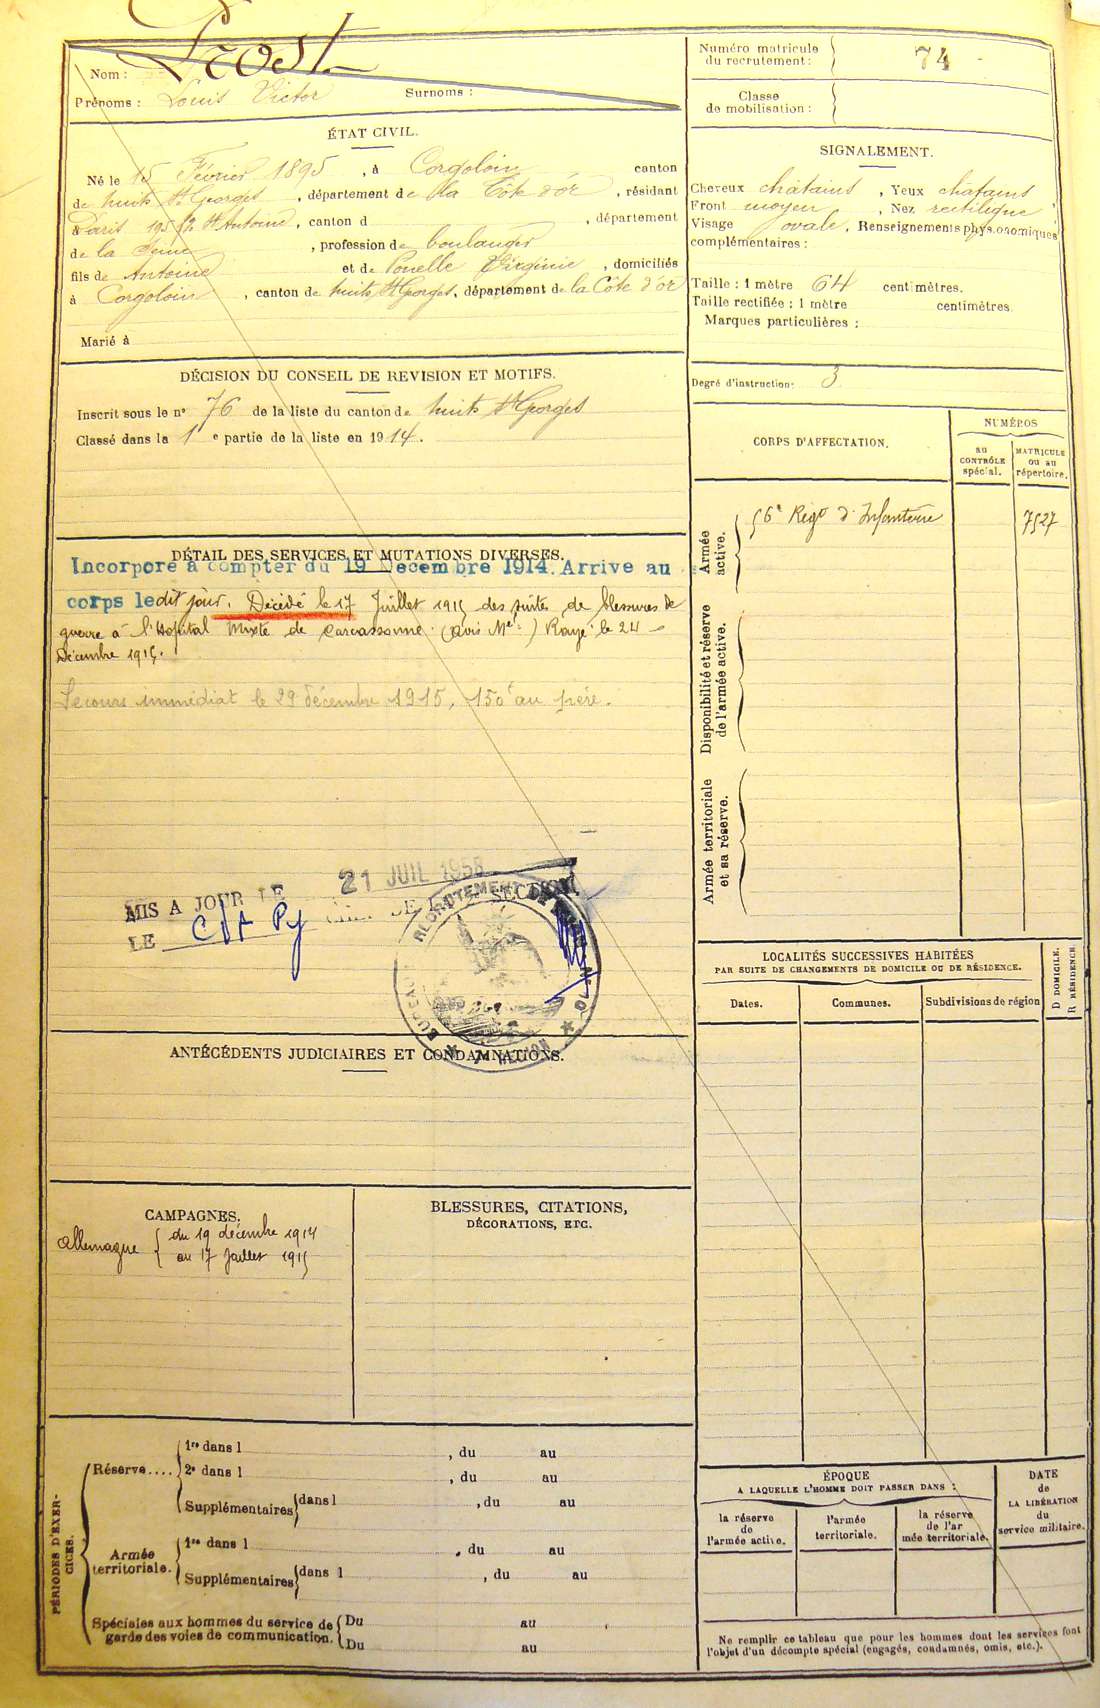 Nom : Prost
Prénoms : Louis Victor Surnoms :
ÉTAT CIVIL.
Né le 15 Février 1895, à Corgoloin canton
de Nuits St Georges, département de la Côte d'or, résidant
à Paris 195 St Antoine, canton d , département
de la Seine , profession de boulanger
fils de Antoine et de Ponelle Virginie, domiciliés
à Corgoloin, canton de Nuits St Georges, département de la Côte d'or
Marié à
DÉCISION DU CONSEIL DE REVISION ET MOTIFS.
Inscrit sous le n° 76 de la liste du canton de Nuits St Georges
Classé dans la 1 e partie de la liste en 1914.
DÉTAIL DES SERVICES ET MUTATIONS DIVERSES.
Incorporé à compter du 19 Décembre 1914. Arrivé au
corps ledit jour. Décédé le 17 Juillet 1915 des suites de blessures de
guerre à l'Hôpital Mixte de Carcassonne. (avis Mel) Rayé le 24
Décembre 1915.
Secours immédiat le 29 décembre 1915, 150 au père.
MIS A JOUR LE 21 JUIL 1958
LE SECTION
BUREAU RECRUTEMENT
RÉGION
ANTÉCÉDENTS JUDICIAIRES ET CONDAMNATIONS.
CAMPAGNES.
Allemagne { du 19 décembre 1914
au 17 Juillet 1915
BLESSURES, CITATIONS,
DÉCORATIONS, ETC.
PÉRIODES D'EXERCICES.
Réserve.... 1re dans l , du au
2e dans l , du au
Supplémentaires dans l , du au
Armée territoriale. 1re dans l , du au
Supplémentaires dans l , du au
Spéciales aux hommes du service de Du au
garde des voies de communication. Du au
Numéro matricule
du recrutement : 74
Classe
de mobilisation :
SIGNALEMENT.
Cheveux châtains, Yeux châtains
Front moyen, Nez rectiligne
Visage ovale, Renseignements physionomiques
complémentaires :
Taille : 1 mètre 64 centimètres.
Taille rectifiée : 1 mètre centimètres.
Marques particulières :
Degré d'instruction : 3
CORPS D'AFFECTATION.
NUMÉROS
au CONTRÔLE spécial.
MATRICULE ou au répertoire.
Armée active.
56e Régt d'Infanterie 7527
Disponibilité et réserve de l'armée active.
Armée territoriale et sa réserve.
LOCALITÉS SUCCESSIVES HABITÉES
PAR SUITE DE CHANGEMENTS DE DOMICILE OU DE RÉSIDENCE.
D DOMICILE.
R RÉSIDENCE.
Dates. Communes. Subdivisions de région
ÉPOQUE
A LAQUELLE L'HOMME DOIT PASSER DANS :
la réserve de l'armée active.
l'armée territoriale.
la réserve de l'armée territoriale.
DATE de LA LIBÉRATION du service militaire.
Ne remplir ce tableau que pour les hommes dont les services font
l'objet d'un décompte spécial (engagés, condamnés, omis, etc.).